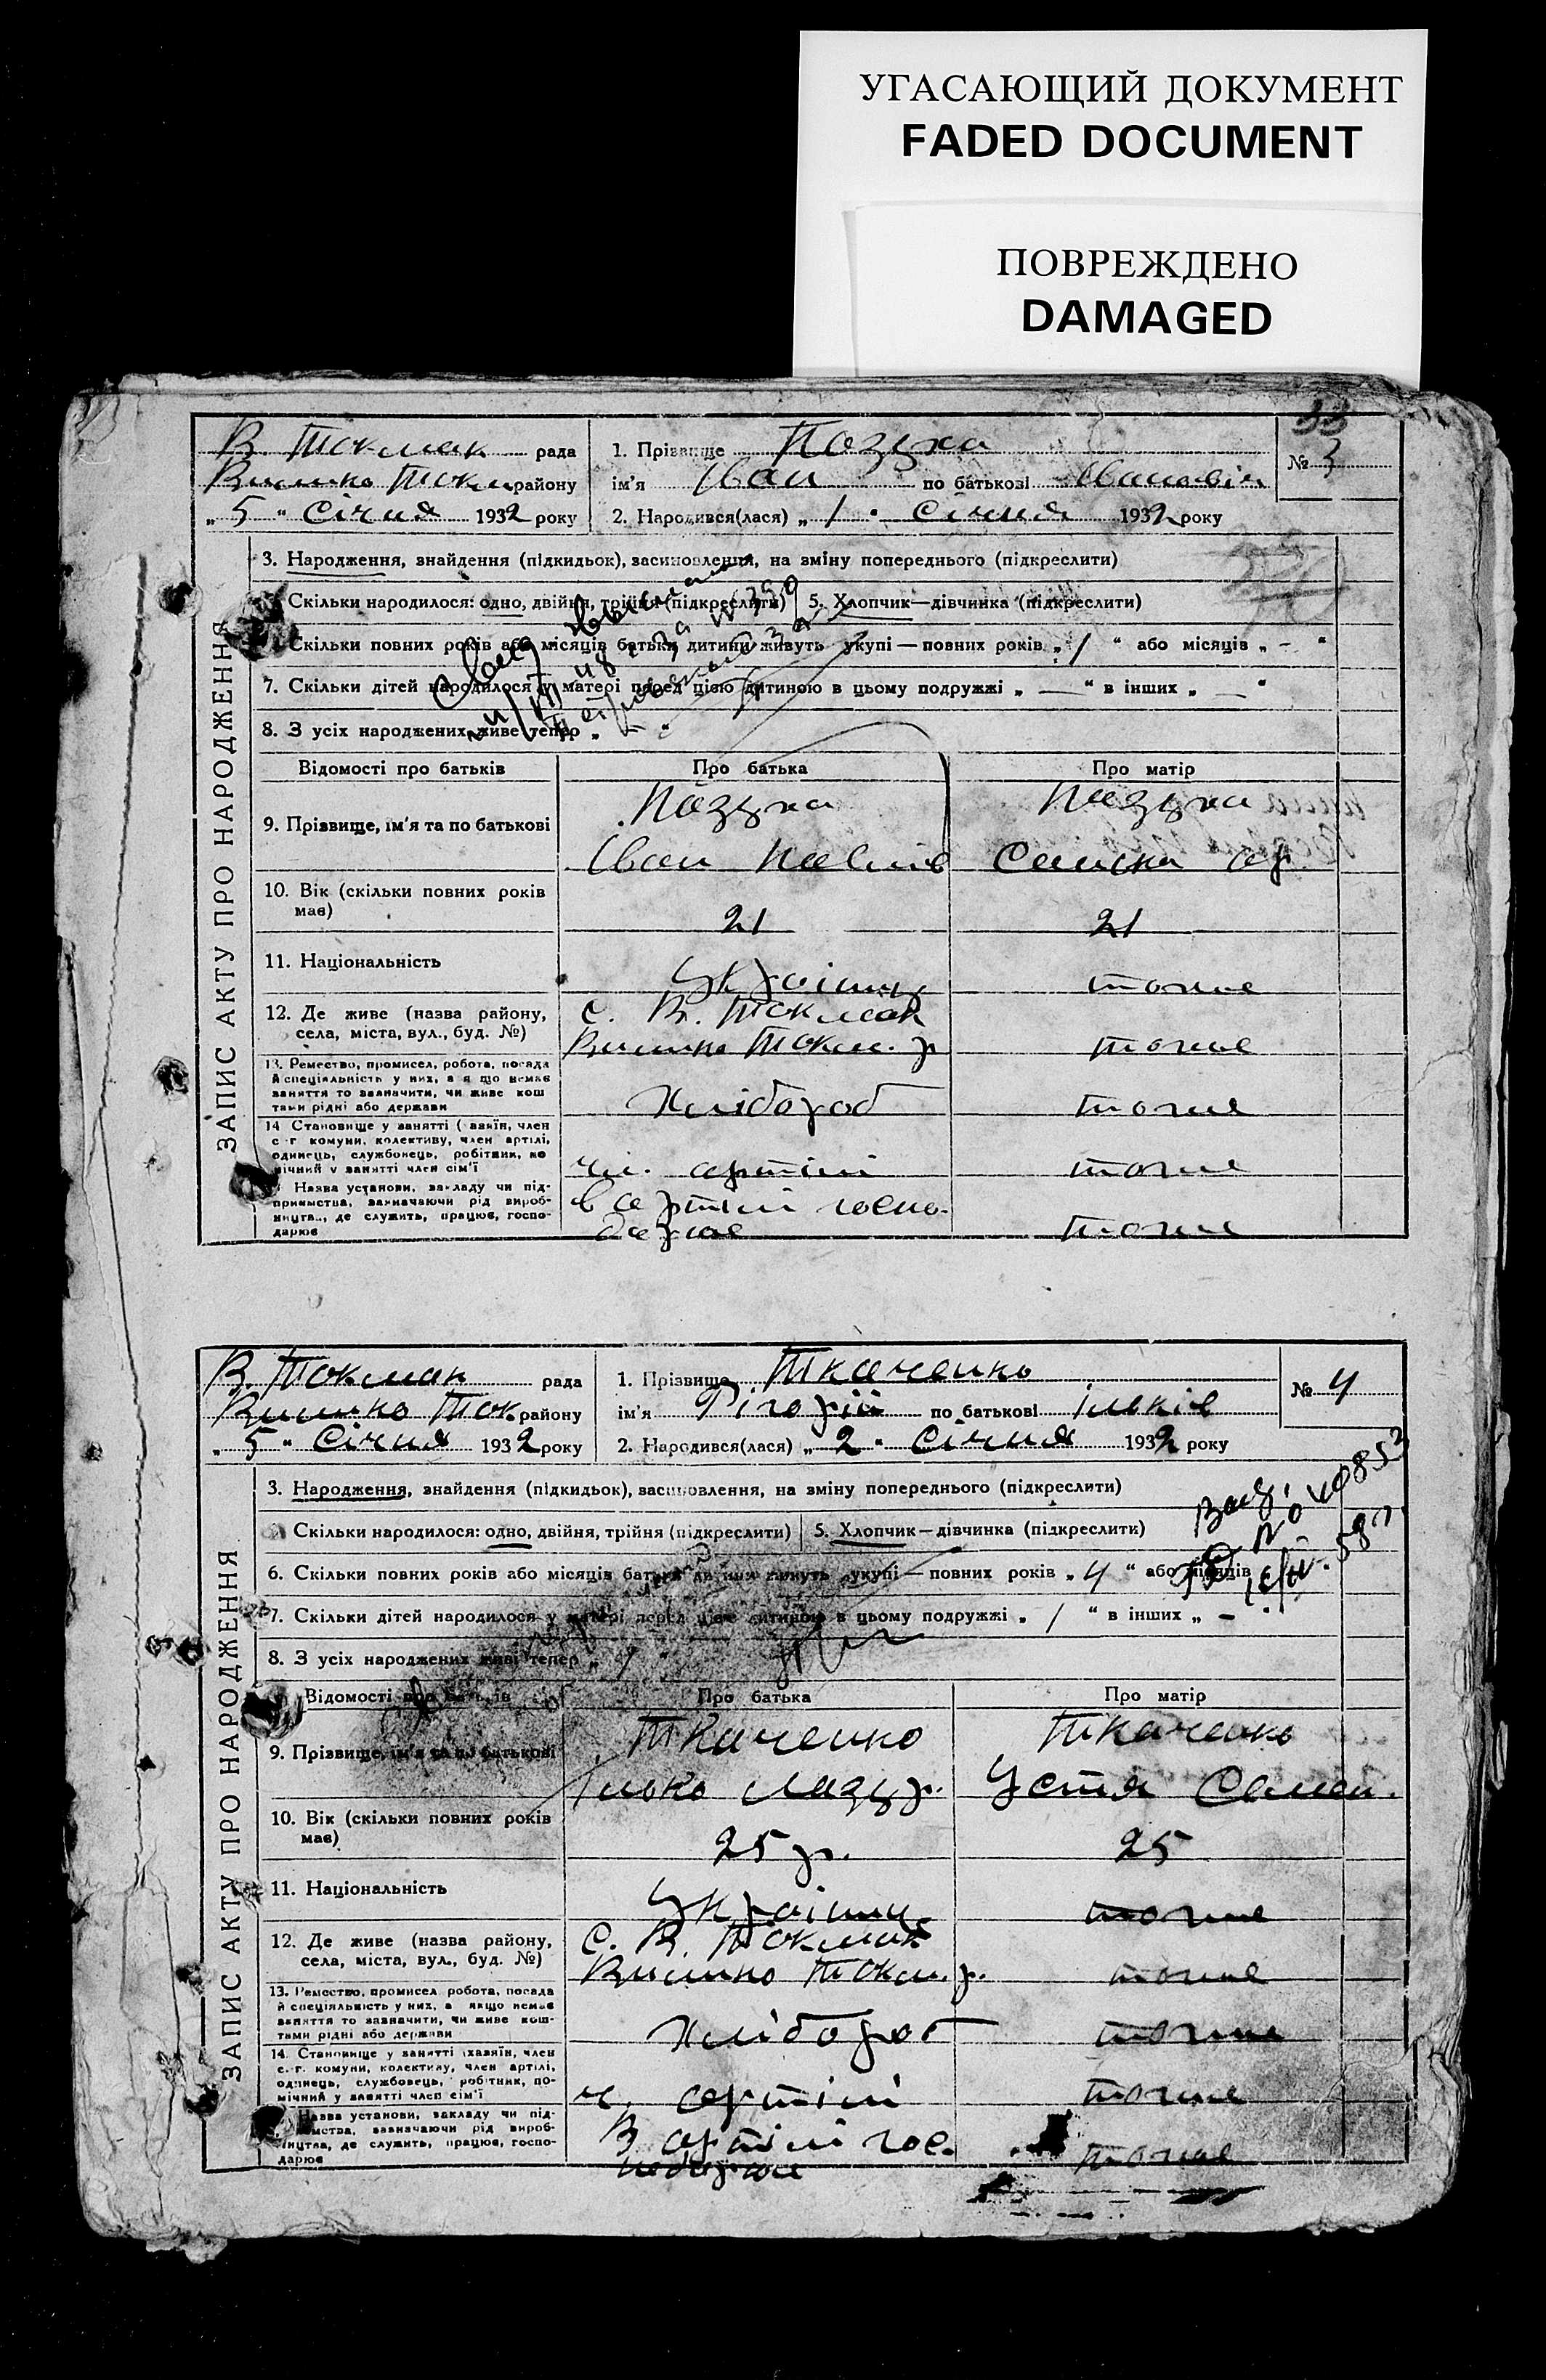 УГАСАЮЩИЙ ДОКУМЕНТ
FADED DOCUMENT
ПОВРЕЖДЕНО
DAMAGED
33
ЗАПИС АКТУ ПРО НАРОДЖЕННЯ
В. Токмак рада
району
„ 5 “ Січня 1932 року
1. Прізвище
ім'я Іван по батькові
2. Народився(лася) „ 1 “ Січня 1932 року
№ 3
3. Народження, знайдення (підкидьок), засиновлення, на зміну попереднього (підкреслити)
Скільки народилося: одно, двійня, трійня (підкреслити)
5. Хлопчик—дівчинка (підкреслити)
Скільки повних років або місяців батьки дитини живуть укупі — повних років „ 1 “ або місяців „ - “
7. Скільки дітей народилося у матері перед цією дитиною в цьому подружжі „ — “ в інших „ — “
8. З усіх народжених живе тепер „ - “
Відомості про батьків
Про батька
Про матір
9. Прізвище, ім'я та по батькові
Іван
10. Вік (скільки повних років має)
21
21
11. Національність
тоже
12. Де живе (назва району, села, міста, вул., буд. №)
с. В. Токмак
Токм. р
тоже
13. Ремество, промисел, робота, посада
й спеціяльність у них, а якщо немає
заняття то зазначити, чи живе кош
тами рідні або держави
Хлібороб
тоже
14 Становище у занятті (хазяїн, член
с-г комуни, колективу, член артілі,
одинець, службовець, робітник, по
мічний у занятті член сім'ї
чл. артілі
тоже
Назва установи, закладу чи під-
приємства, зазначаючи рід вироб-
ництва, де служить, працює, госпо-
дарює
в артілі госпо-
дарює
тоже
ЗАПИС АКТУ ПРО НАРОДЖЕННЯ
В. Токмак рада
Ток. району
„ 5 “ Січня 1932 року
1. Прізвище Ткаченко
ім'я Грігорій по батькові Ільків
2. Народився(лася) „ 2 “ Січня 1932 року
№ 4
3. Народження, знайдення (підкидьок), засиновлення, на зміну попереднього (підкреслити)
Скільки народилося: одно, двійня, трійня (підкреслити)
5. Хлопчик—дівчинка (підкреслити)
6. Скільки повних років або місяців батьки дитини живуть укупі — повних років „ 4 “ або місяців
7. Скільки дітей народилося у матері перед цією дитиною в цьому подружжі „ 1 “ в інших „ - “
8. З усіх народжених живі тепер
Відомості про батьків
Про батька
Про матір
9. Прізвище, ім'я та по батькові
Ткаченко
Ілько Лазар.
Ткаченко
Устя Семен.
10. Вік (скільки повних років має)
25 р.
25
11. Національність
тоже
12. Де живе (назва району, села, міста, вул., буд. №)
с. В. Токмак
Токм. р.
тоже
13. Ремество, промисел робота, посада
й спеціяльність у них, а якщо немає
заняття то зазначити, чи живе кош-
тами рідні або держави
Хлібороб
тоже
14. Становище у занятті (хазяїн, член
с.-г. комуни, колективу, член артілі,
одинець, службовець, робітник, по-
мічний у занятті член сім'ї
ч. артілі
тоже
Назва установи, закладу чи під-
приємства, зазначаючи рід вироб-
ництва, де служить, працює, госпо-
дарює
В артілі гос.
тоже